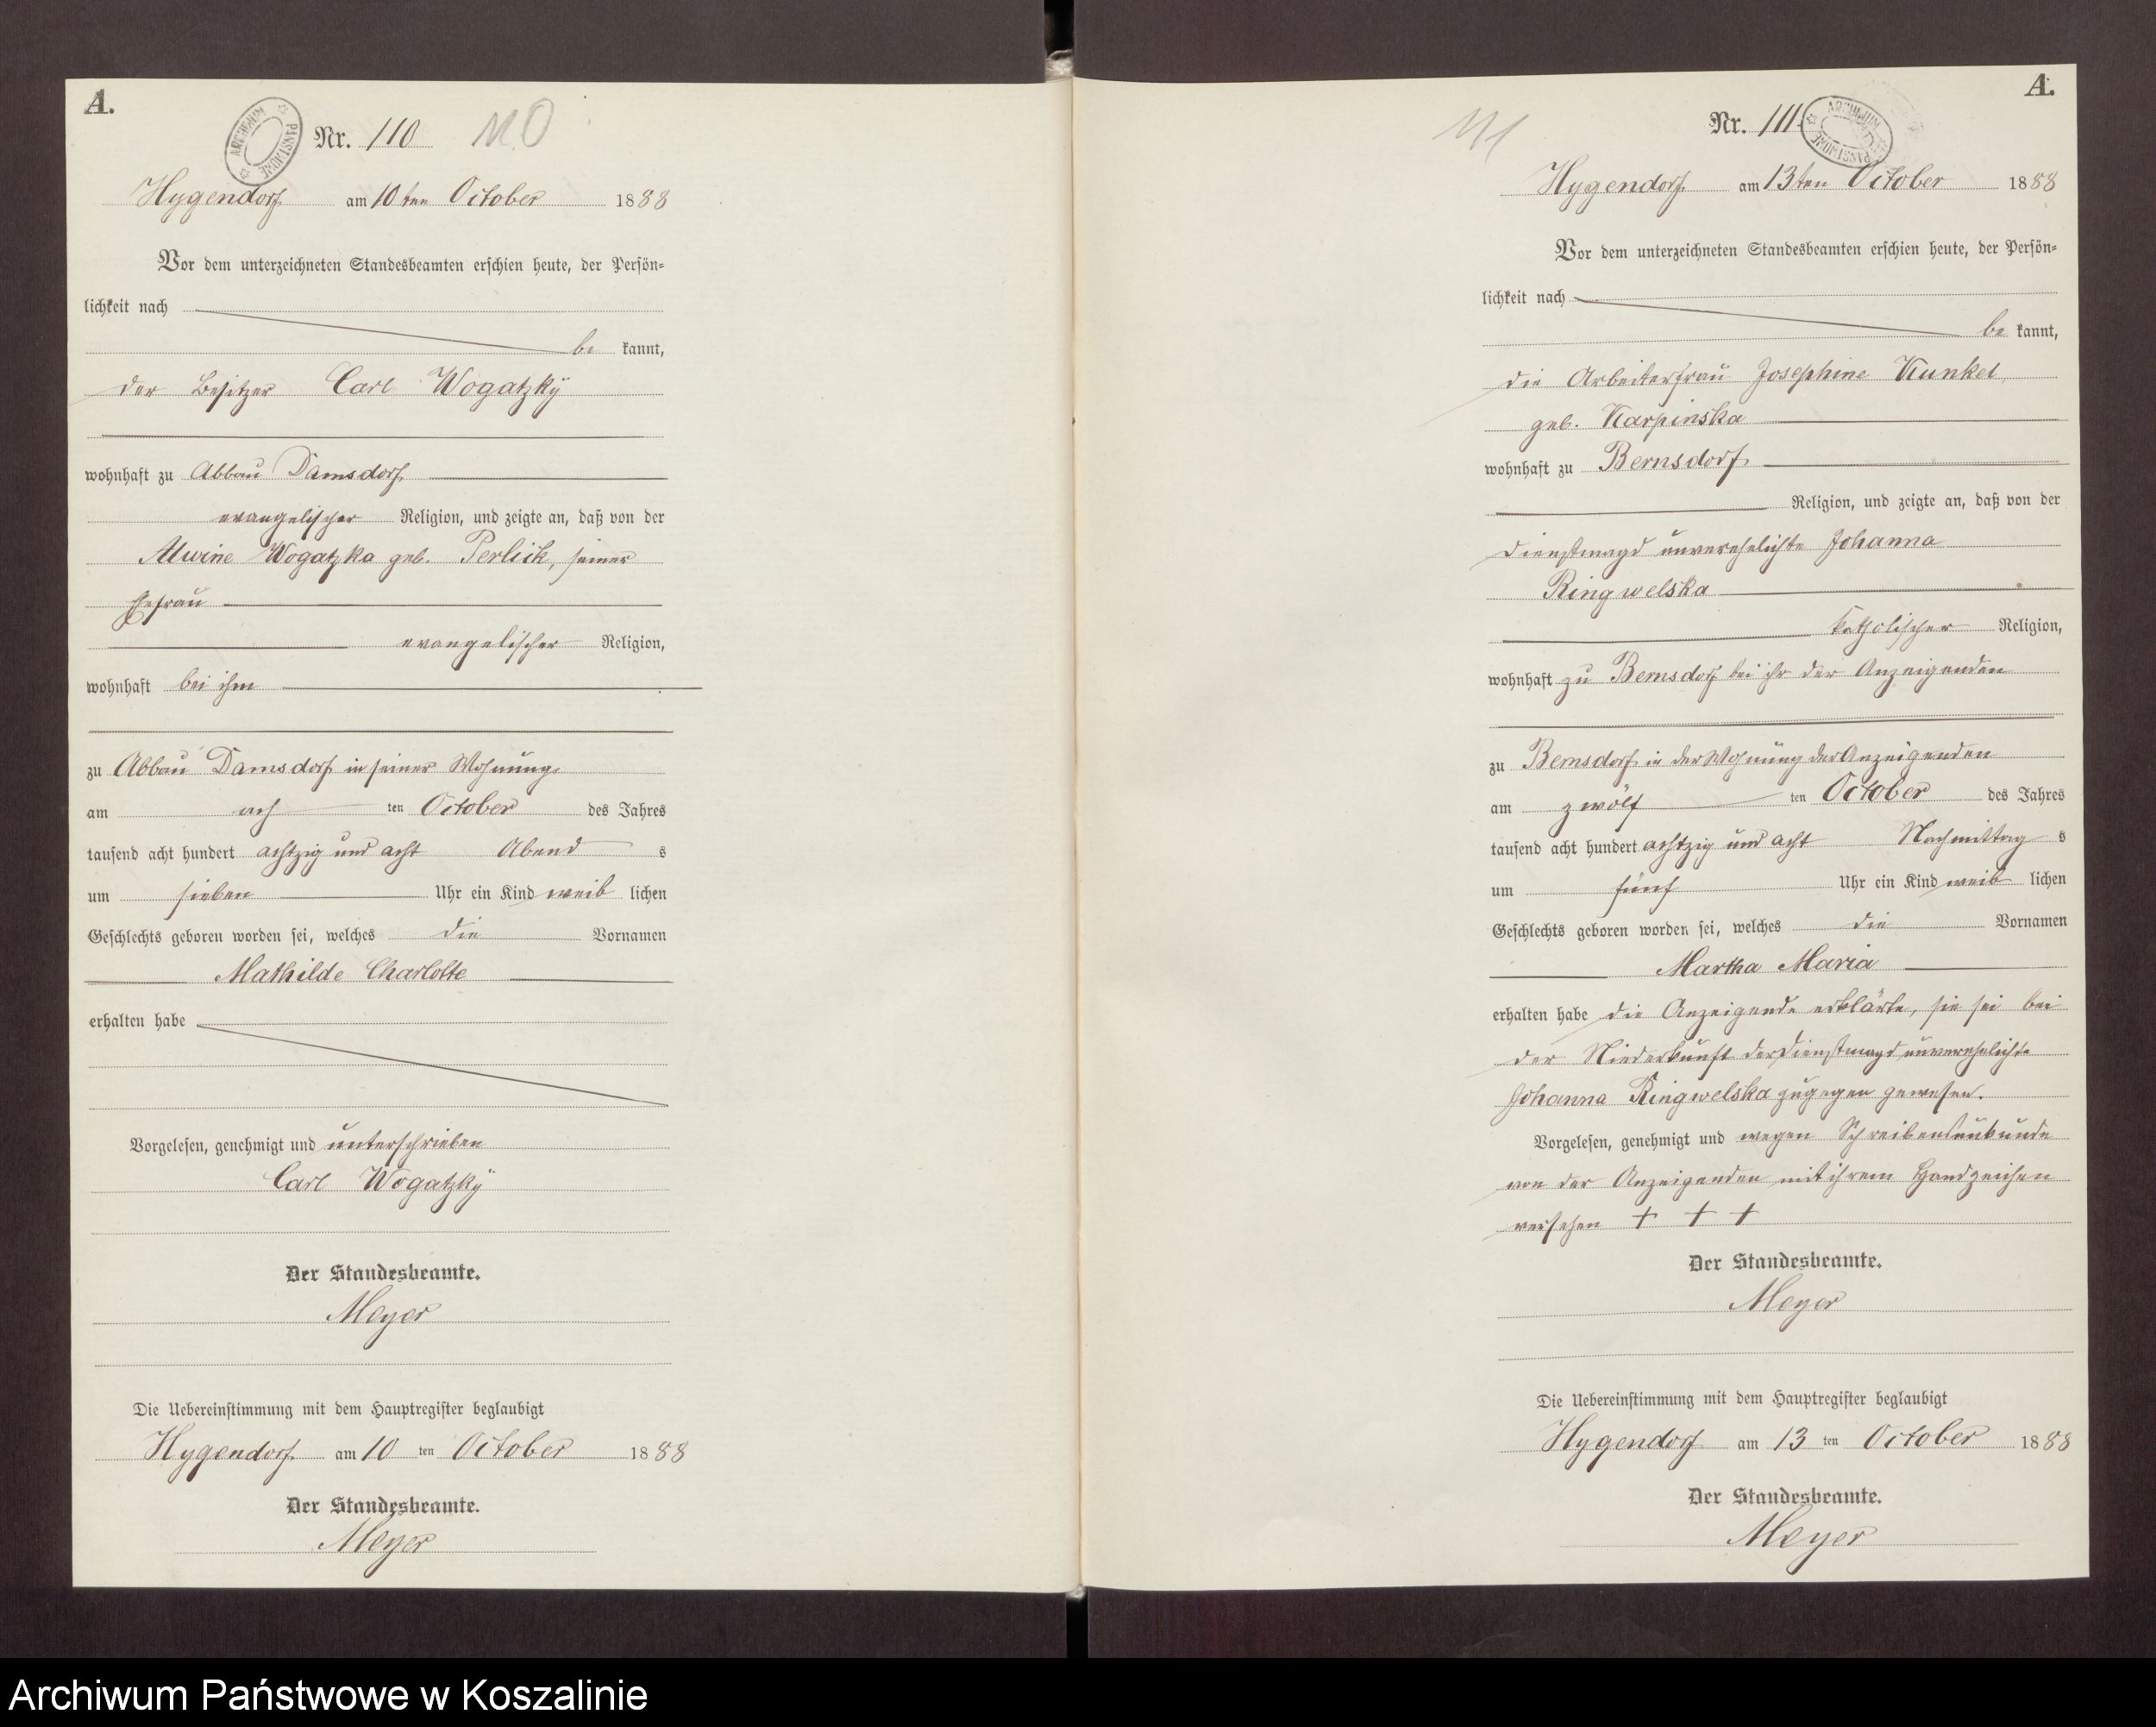 A.
ARCHIWUM PAŃSTWOWE
Nr. 110 110
Hygendorf am 10ten October 1888
Vor dem unterzeichneten Standesbeamten erschien heute, der Persön-
lichkeit nach
be kannt,
der Besitzer Carl Wogatzky
wohnhaft zu Abbau Damsdorf
evangelischer Religion, und zeigte an, daß von der
Alwine Wogatzka geb. Perlick, seiner
Ehefrau
evangelischer Religion,
wohnhaft bei ihm
zu Abbau Damsdorf in seiner Wohnung
am ach ten October des Jahres
tausend acht hundert achtzig und acht Abend s
um sieben Uhr ein Kind weib lichen
Geschlechts geboren worden sei, welches die Vornamen
Mathilde Charlotte
erhalten habe
Vorgelesen, genehmigt und unterschrieben
Carl Wogatzky
Der Standesbeamte.
Meyer
Die Uebereinstimmung mit dem Hauptregister beglaubigt
Hygendorf am 10 ten October 1888
Der Standesbeamte.
Meyer
A.
111 Nr. 111
ARCHIWUM PAŃSTWOWE
Hygendorf am 13ten October 1888
Vor dem unterzeichneten Standesbeamten erschien heute, der Persön-
lichkeit nach
be kannt,
die Arbeiterfrau Josephine Kunkel
geb. Karpinska
wohnhaft zu Bernsdorf
Religion, und zeigte an, daß von der
Dienstmagd unverehelichte Johanna
Ringwelska
katholischer Religion,
wohnhaft zu Bernsdorf bei ihr der Anzeigenden
zu Bernsdorf in der Wohnung der Anzeigenden
am zwölf ten October des Jahres
tausend acht hundert achtzig und acht Nachmittag s
um fünf Uhr ein Kind weib lichen
Geschlechts geboren worden sei, welches die Vornamen
Martha Maria
erhalten habe die Anzeigende erklärte, sie sei bei
der Niederkunft der Dienstmagd unverehelichte
Johanna Ringwelska zugegen gewesen.
Vorgelesen, genehmigt und wegen Schreibensunkunde
von der Anzeigenden mit ihrem Handzeichen
versehen + + +
Der Standesbeamte.
Meyer
Die Uebereinstimmung mit dem Hauptregister beglaubigt
Hygendorf am 13 ten October 1888
Der Standesbeamte.
Meyer
Archiwum Państwowe w Koszalinie